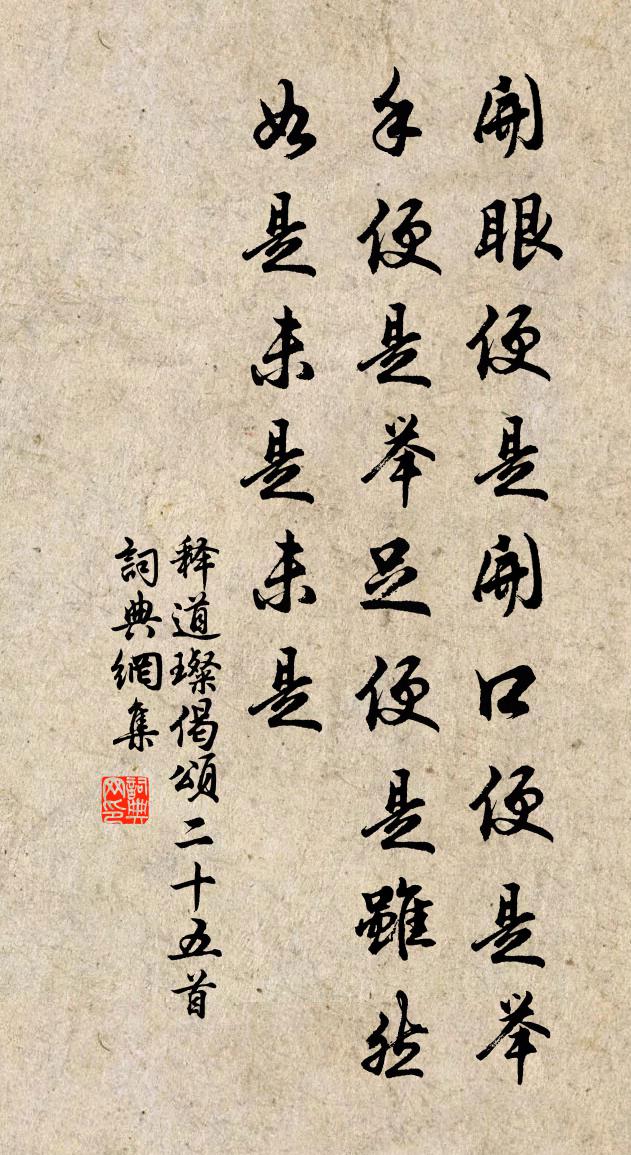 開眼便是開口便是举
手便是举足便是雖然
如是未是未是
释道璨偈頌二十五首
詞典網集
詞典
网印